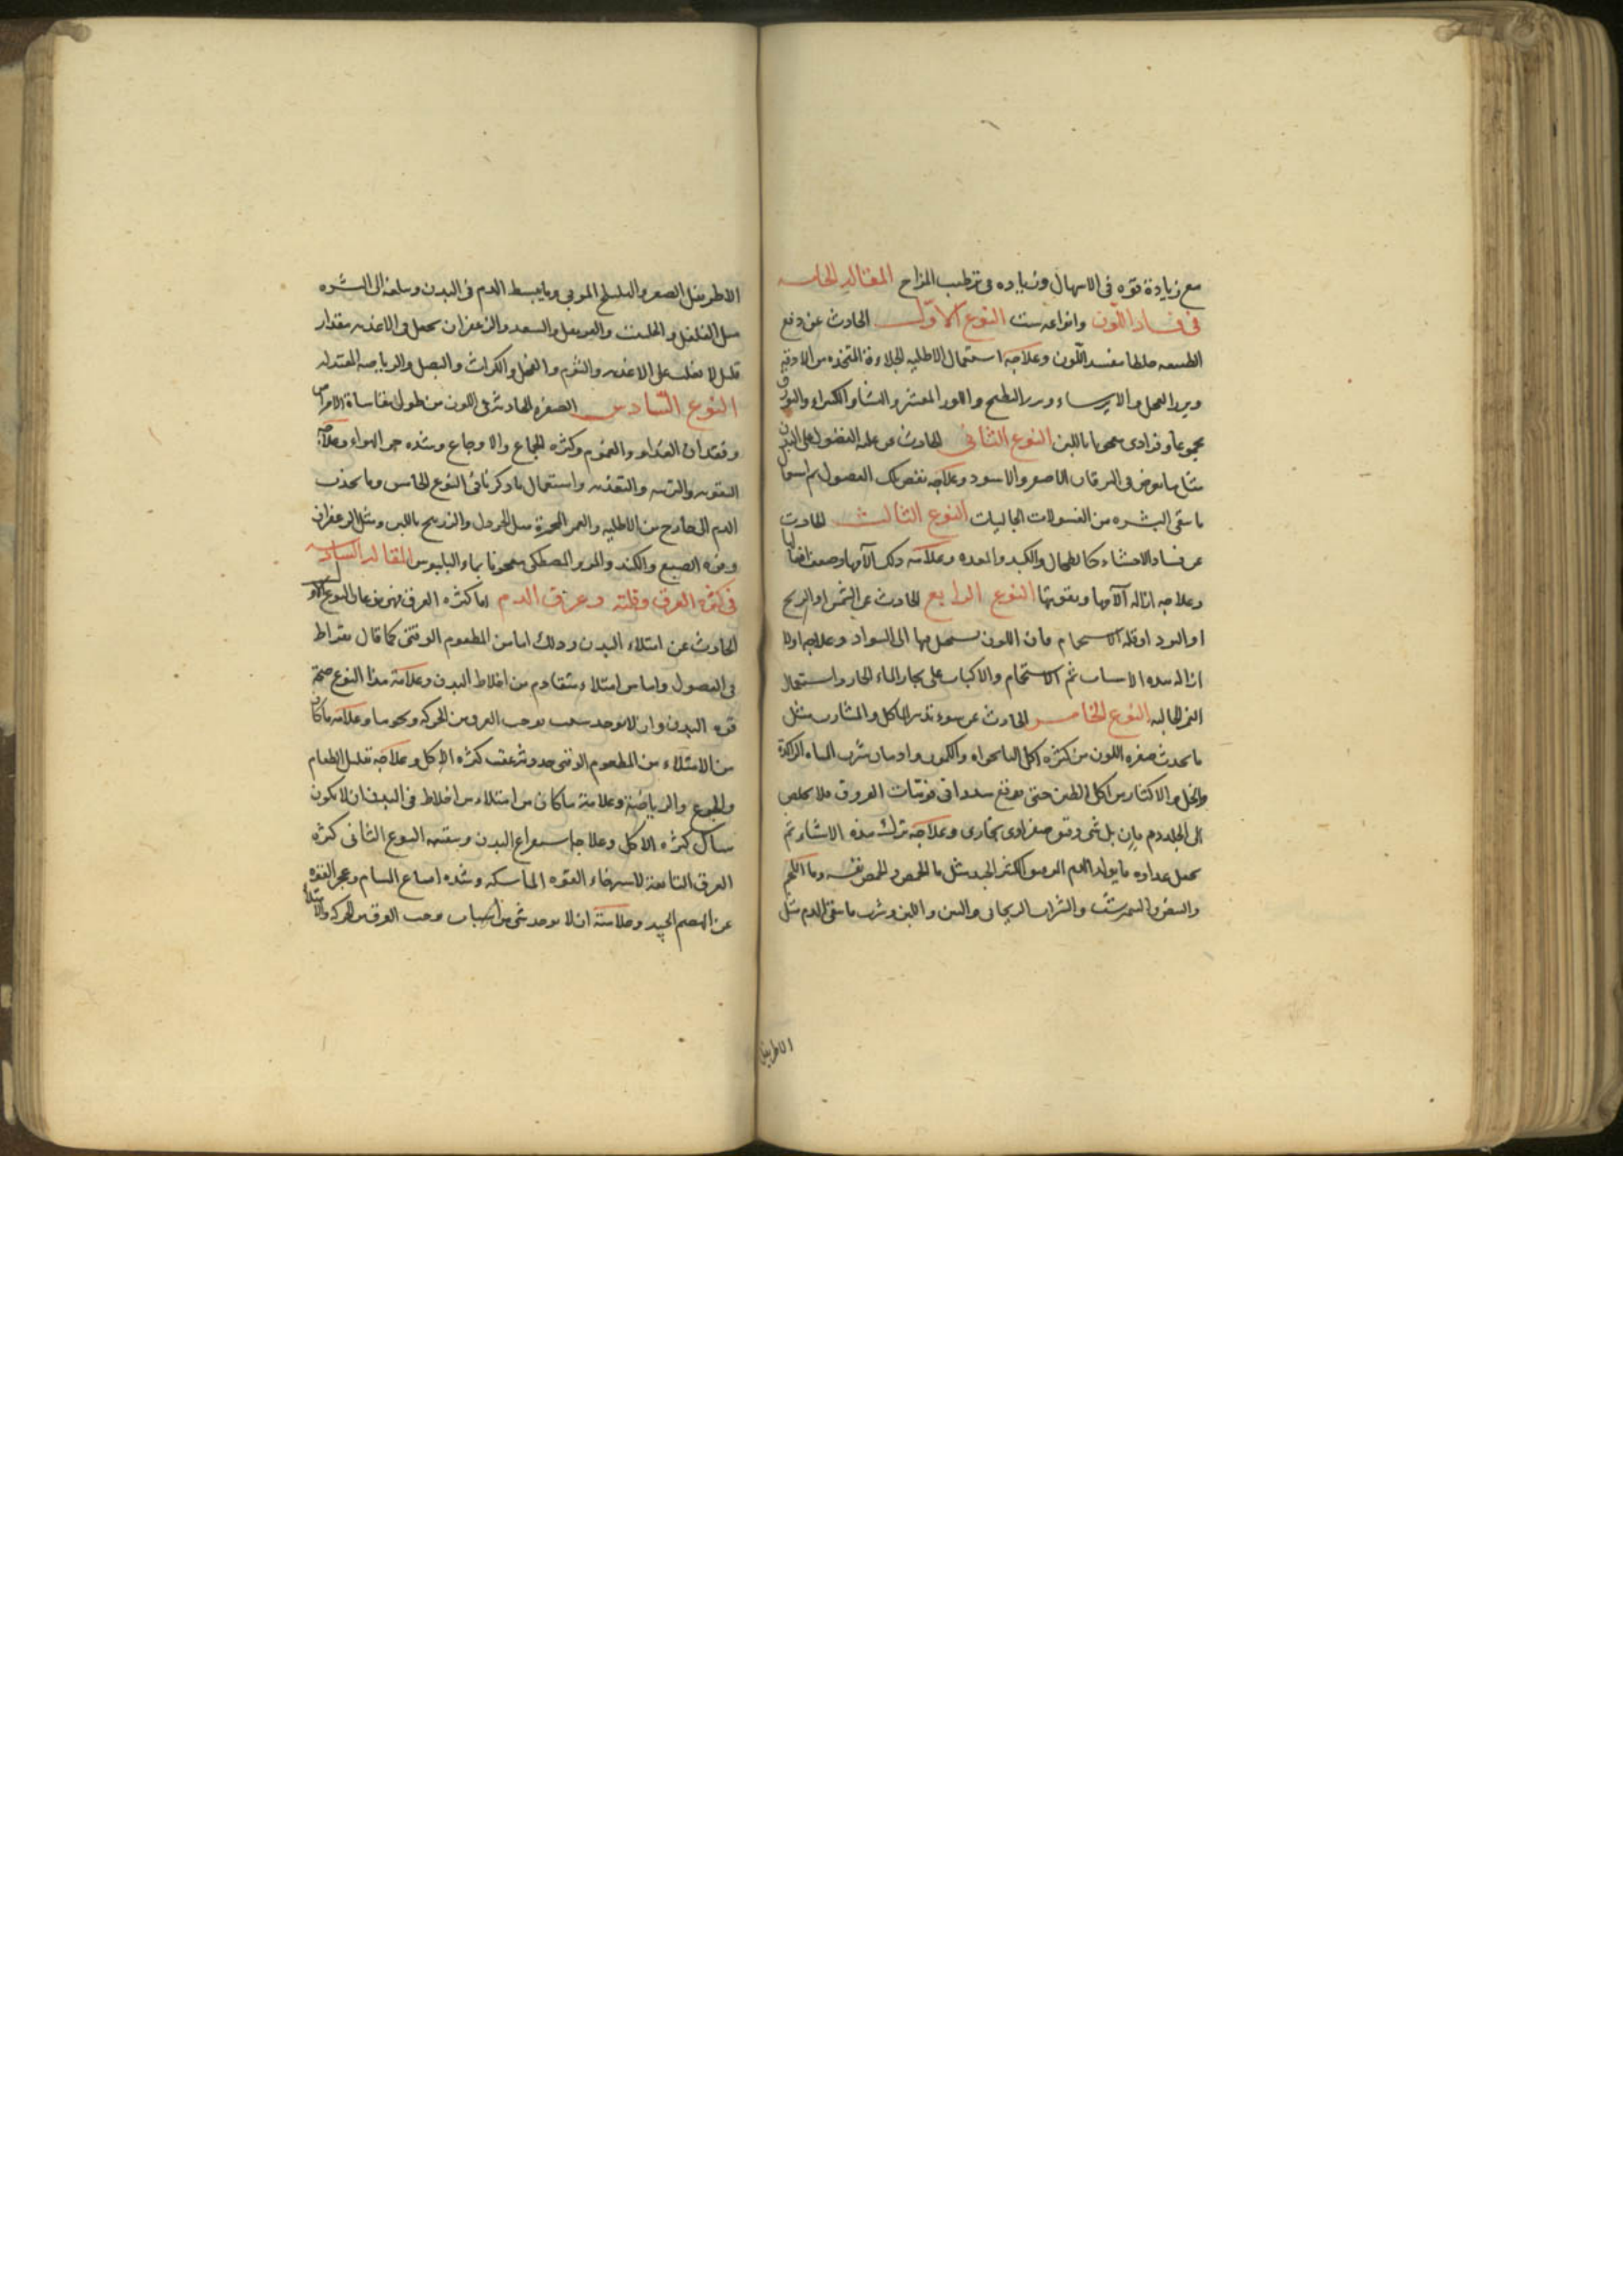 مع زيادة قوه فى الاسهال وزياده فى ترطيب المزاج المقاله الخامسه
فى فساد اللون وانواعه ست النوع الاول الحادث عن دفع
الطبيعه خلطا مفسد اللون وعلاجه استعمال الاطليه الجلاءة المتخذه من الادقه
وبزر الفجل والايرساء وبزر البطيخ واللوز المقشر والنشا والكثيراء والبورق
مجموعا وفرادى معجونا باللبن النوع الثانى الحادث عن غلبه الفضول على البدن
مثل ما يعرض فى اليرقان الاصفر والاسود وعلاجه نقص تلك الفضول ثم استعمال
ما ينقى البشره من الغسولات الجاليات النوع الثالث الحادث
عن فساد الاحشاء كالطحال والكبد والمعده وعلامته وآلامها وضعف افعالها
وعلاجه ازاله آلامها وتقويتها النوع الرابع الحادث عن الشمس او الريح
او البرد او قله الاستحمام فان اللون يستحيل بها الى السواد وعلاجها اولا
ازاله هذه الاسباب ثم الاستحمام والاكباب على بخار الماء الحار واستعمال
الجاليه النوع الخامس الحادث عن سوء تدبير المأكل والمشارب مثل
ما يحدث صفره اللون من كثره اكل النانخواه والكمون وادمان شرب المياه الراكدة
والخل والاكثار من اكل الطين حتى يوقع سددا فى فوهات العروق فلا يخلص
الى الجلد دم بل شى رقيق صفراوى بخارى وعلاجه ترك هذه الاشياء ثم
يجعل غذاوه ما يولد الدم الكثير الجيد مثل ماء الحمص والحمص نفسه وماء اللحم
والبيض النيمرشت والشراب الريحانى والتين واللبن وشرب ما ينقى الدم مثل
الاطريفل
الاطريفل الصغير والهليلج المربى وما يبسط الدم فى البدن ويبلغه الى البشره
مثل الفلفل والحلتيت والقرنفل والسعد والزعفران يجعل فى الاغذيه بمقدار
قليل لا يغلب على الاغذيه والثوم والفجل والكراث والبصل والرياضه المعتدله
النوع السادس الصفره الحادثه فى اللون من طول مقاساة الامراض
وفقدان الغذاء والغموم وكثره الجماع والاوجاع وشده حر الهواء وعلاجه
التقويه والتغذيه واستعمال ما ذكرنا فى النوع الخامس وما يجذب
الدم الى خارج من الاطليه والغمر المحمرة مثل الخردل والزرنيخ باللبن ومثل الزعفران
وفوه الصبغ والكندر والمر والمصطكى معجونا بماء البلبوس المقاله السادسه
فى كثره العرق وقلته وعرق الدم اما كثره العرق فهى نوعان النوع الاول
الحادث عن امتلاء البدن وذلك اما من المطعوم الوقتى كما قال بقراط
فى الفصول واما من امتلاء متقادم من اخلاط البدن وعلامة هذا النوع صحة
قوه البدن وان لا يوجد سبب يوجب العرق من الحركه ونحوها وعلامه ما كان
من الامتلاء من المطعوم الوقتى حدوثه عقب كثره الاكل وعلاجه تقليل الطعام
والجوع والرياضة وعلامة ما كان من امتلاء من اخلاط فى البدن ان لا يكون
هناك كثره الاكل وعلاجها استفراغ البدن وتنقيته النوع الثانى كثره
العرق التابعة لاسترخاء القوه الماسكه وشده اتساع المسام وعجز القوه
عن الهضم الجيد وعلامته ان لا يوجد شى من اسباب توجب العرق من الحركه والامتلاء